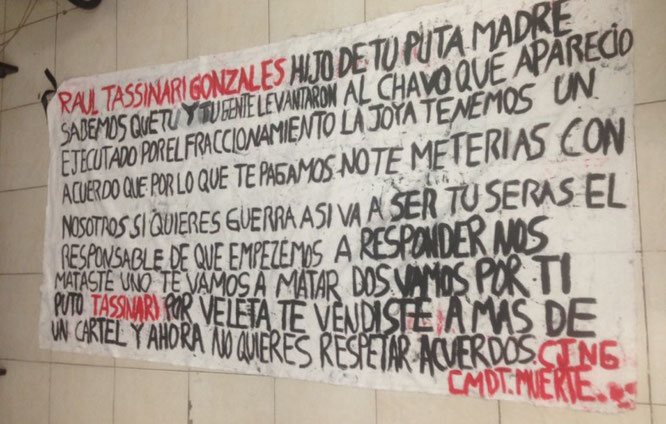 RAUL TASSINARI GONZALES HIJO DE TU PUTA MADRE
SABEMOS QUE TU Y TU GENTE LEVANTARON AL CHAVO QUE APARECIO
EJECUTADO POR EL FRACCIONAMIENTO LA JOYA TENEMOS UN
ACUERDO QUE POR LO QUE TE PAGAMOS NO TE METERIAS CON
NOSOTROS SI QUIERES GUERRA ASI VA A SER TU SERAS EL
RESPONSABLE DE QUE EMPEZEMOS A RESPONDER NOS
MATASTE UNO TE VAMOS A MATAR DOS VAMOS POR TI
PUTO TASSINARI POR VELETA TE VENDISTE A MAS DE
UN CARTEL Y AHORA NO QUIERES RESPETAR ACUERDOS. CJNG
CMDT. MUERTE.